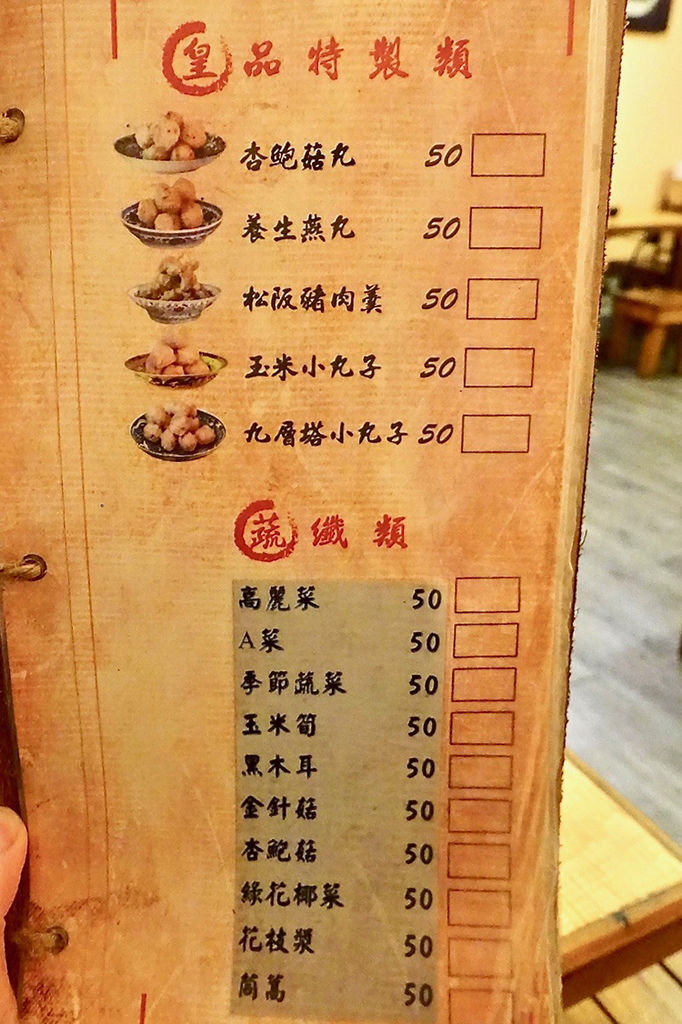 皇品特製類
杏鮑菇丸 50
養生燕丸 50
松阪豬肉羹 50
玉米小丸子 50
九層塔小丸子 50
蔬纖類
高麗菜 50
A菜 50
季節蔬菜 50
玉米筍 50
黑木耳 50
金針菇 50
杏鮑菇 50
綠花椰菜 50
花枝漿 50
茼蒿 50